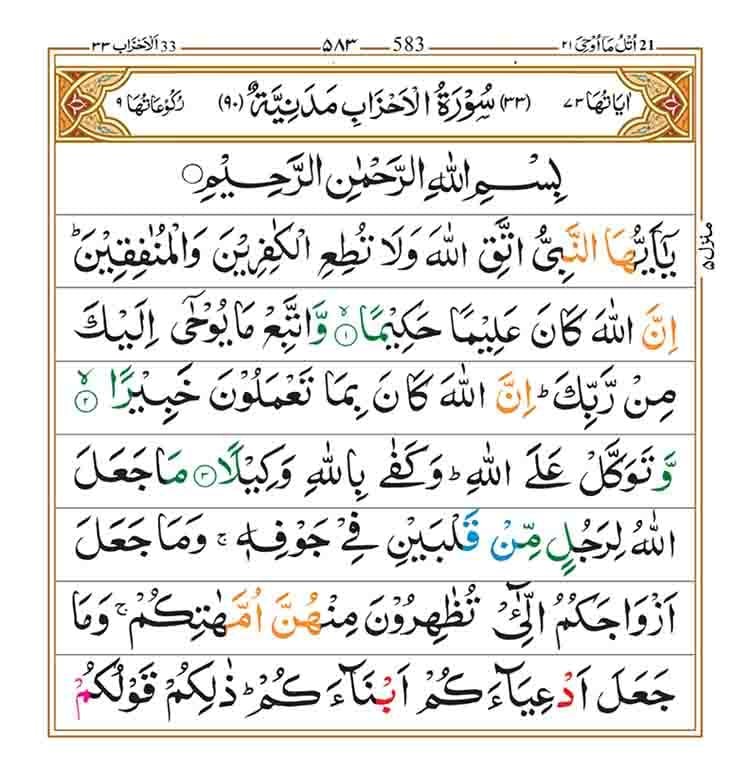 اُتْلُ مَآ اُوْحِیَ ٢١ 21 583 ۵۸۳ 33 اَلْاَحْزَاب ٣٣
اٰیَاتُهَا ٧٣ (٣٣) سُوْرَةُ الْاَحْزَابِ مَدَنِيَّةٌ (٩٠) رُكُوْعَاتُهَا ٩
بِسْمِ اللّٰهِ الرَّحْمٰنِ الرَّحِيْمِ
يٰٓاَيُّهَا النَّبِيُّ اتَّقِ اللّٰهَ وَلَا تُطِعِ الْكٰفِرِيْنَ وَالْمُنٰفِقِيْنَ ؕ
منزل ۵
اِنَّ اللّٰهَ كَانَ عَلِيْمًا حَكِيْمًا ۙ‏١ وَّاتَّبِعْ مَا يُوْحٰۤى اِلَيْكَ
مِنْ رَّبِّكَ ؕ اِنَّ اللّٰهَ كَانَ بِمَا تَعْمَلُوْنَ خَبِيْرًا ۙ‏٢
وَّتَوَكَّلْ عَلَى اللّٰهِ ؕ وَكَفٰى بِاللّٰهِ وَكِيْلًا ٣ مَا جَعَلَ
اللّٰهُ لِرَجُلٍ مِّنْ قَلْبَيْنِ فِيْ جَوْفِهٖ ۚ وَمَا جَعَلَ
اَزْوَاجَكُمُ الّٰٓـِٔيْ تُظٰهِرُوْنَ مِنْهُنَّ اُمَّهٰتِكُمْ ۚ وَمَا
جَعَلَ اَدْعِيَآءَكُمْ اَبْنَآءَكُمْ ؕ ذٰلِكُمْ قَوْلُكُمْ